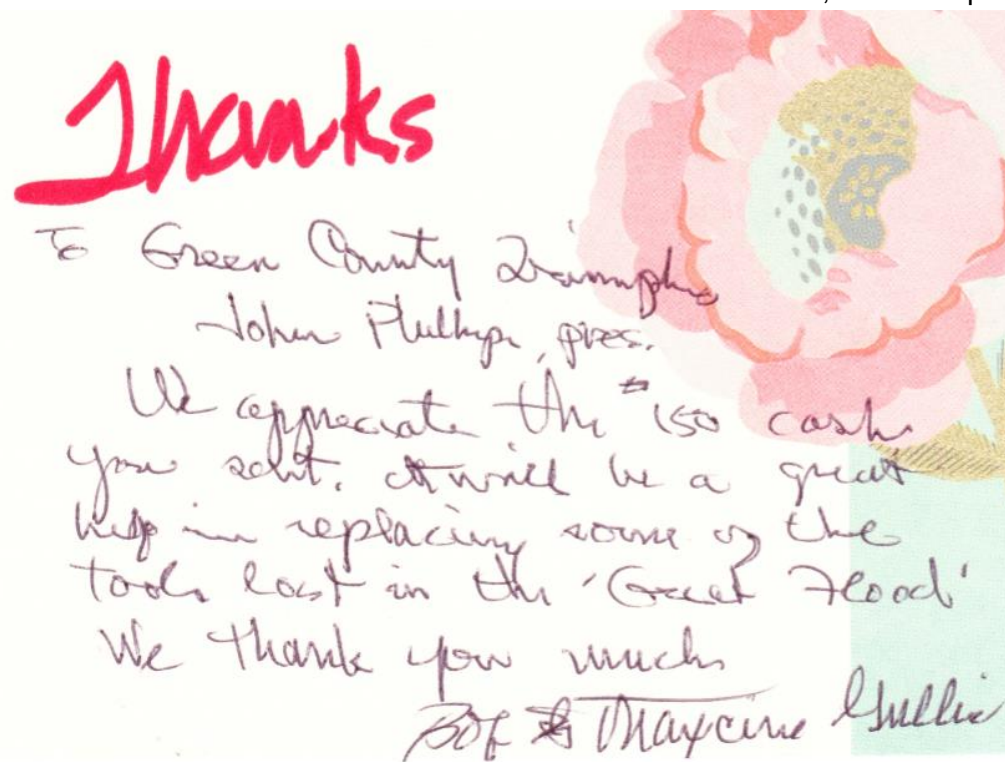 Thanks
To Green County Triumphs
John Phillips, pres.
We appreciate the $150 cash
you sent. It will be a great
help in replacing some of the
tools lost in the 'Great Flood'
We thank you much
Bob & Maxcine Gullic